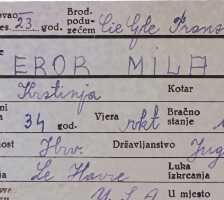 ovao
es. 23 god. Brod. podu- zećem Cie Gle Trans
EROR MILA
Krstinja Kotar
34 god. Vjera rkt Bračno stanje
ost Hrv. Državljanstvo Jug
Le Havre Luka izkrcanja
U.S.A. U mjesto